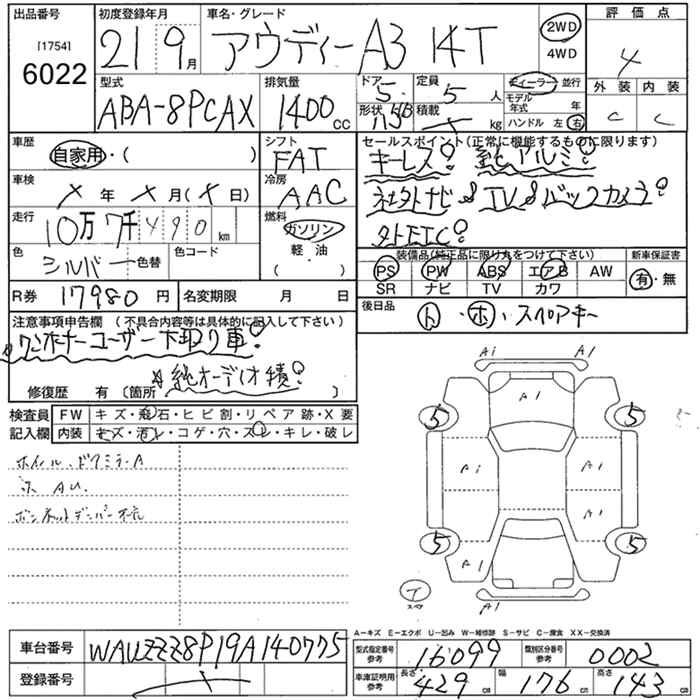 出品番号
[1754]
6022
初度登録年月
21 9月
車名・グレード
アウディーA3 14T
2WD
4WD
評価点
4
外装 内装
C C
型式
ABA-8PCAX
排気量
1400cc
ドア
5
定員
5人
ディーラー 並行
モデル年式 年
形状
HB
積載
kg
ハンドル 左 右
車歴
自家用・( )
シフト
FAT
車検
年 月( 日)
冷房
AAC
走行
10万7千490km
燃料
ガソリン
軽・油
( )
色
シルバー
色替
色コード
R券
17980円
名変期限 月 日
セールスポイント(正常に機能するものに限ります)
キーレス! 純アルミ!
社外ナビ & TV & バックカメラ!
外ETC!
装備品(純正品に限り丸をつけて下さい)
PS PW ABS エアB AW
SR ナビ TV カワ
新車保証書
有・無
後日品
ト・ホ・スペアキー
注意事項申告欄 (不具合内容等は具体的に記入して下さい)
ワンオーナーユーザー下取り車!
純オーディオ積!
修復歴 有 〔箇所 〕
検査員
記入欄
FW キズ・飛石・ヒビ割・リペア跡・X要
内装 キズ・汚レ・コゲ・穴・スレ・キレ・破レ
ホイル、ドアミラーA
AU.
ボンネットダンパー不充
A1 A1
A1
5 5
A1 A1
A1
5 5
A1
A1
A-キズ E-エクボ U-凹み W-補修跡 S-サビ C-腐食 XX-交換済
車台番号
WAUZZZ8P19A140775
登録番号
型式指定番号
参考
16099
類別区分番号
参考
0002
車庫証明用
参考
長さ
429cm
幅
176cm
高さ
143cm